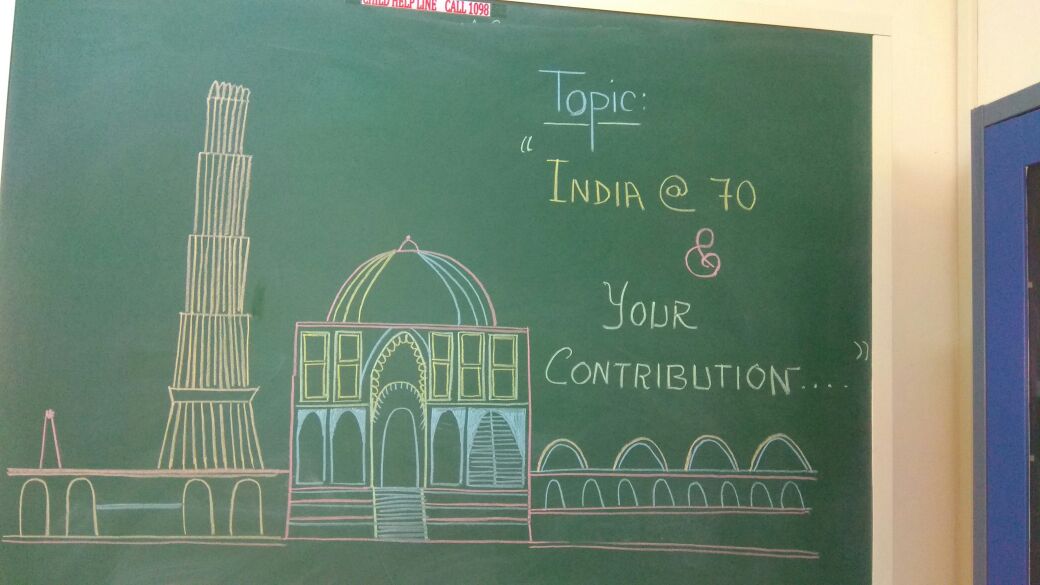 CHILD HELP LINE CALL 1098
Topic:
"INDIA @ 70
&
YOUR
CONTRIBUTION...."